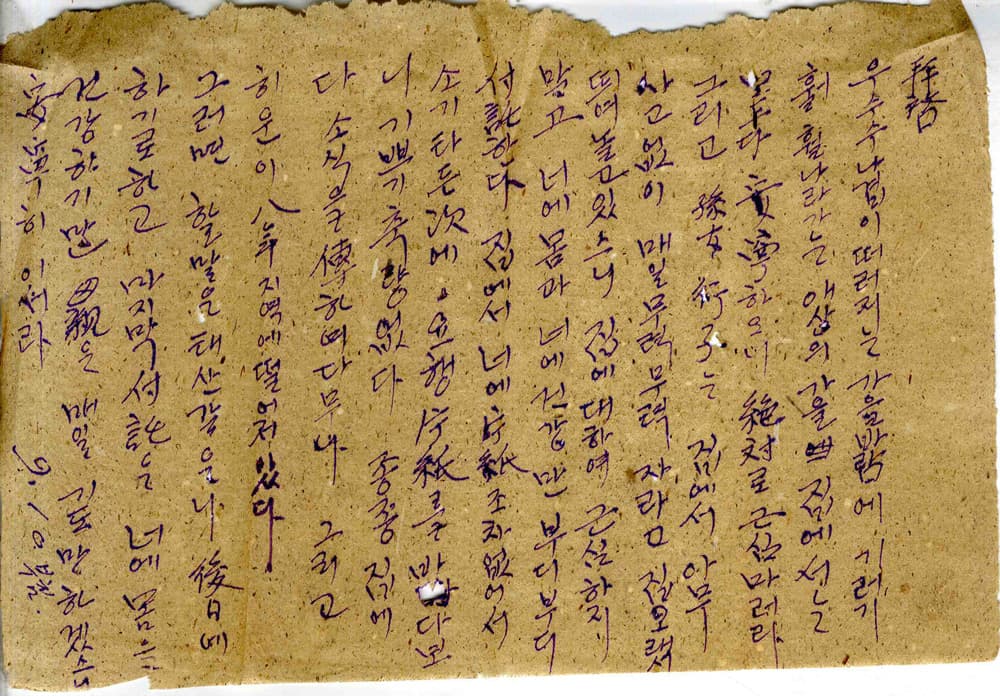 拜啓
우수수 나겁이 떠러지는 가을밤에 기러기
훨 훨 나라가는 애상의 가을 집에서는
모다 安寧하오니 絶対로 근심마러라
그리고 孫女 는 집에서 아무
사고 없이 매일 무럭무럭 자라고 집오랫
뛰며 놀고 있스니 집에 대하여 근심하지
말고 너에 몸과 너에 건강만 부디부디
付託한다 집에서 너에 片紙조차 없어서
소기타든 次에 요행 片紙를 바다보
니 기쁘기 측량 없다 종종 집에
다 소식을 傳하여 다무나 그리고
히운이 八年 지역에 떨어저 있다
그러면 할말은 태산갓으나 後日에
하기로 하고 마지막 付託은 너에 몸은
건강하기만 은 매일 긔도만 하겠스니
安寧히 이서라 9. 10日.